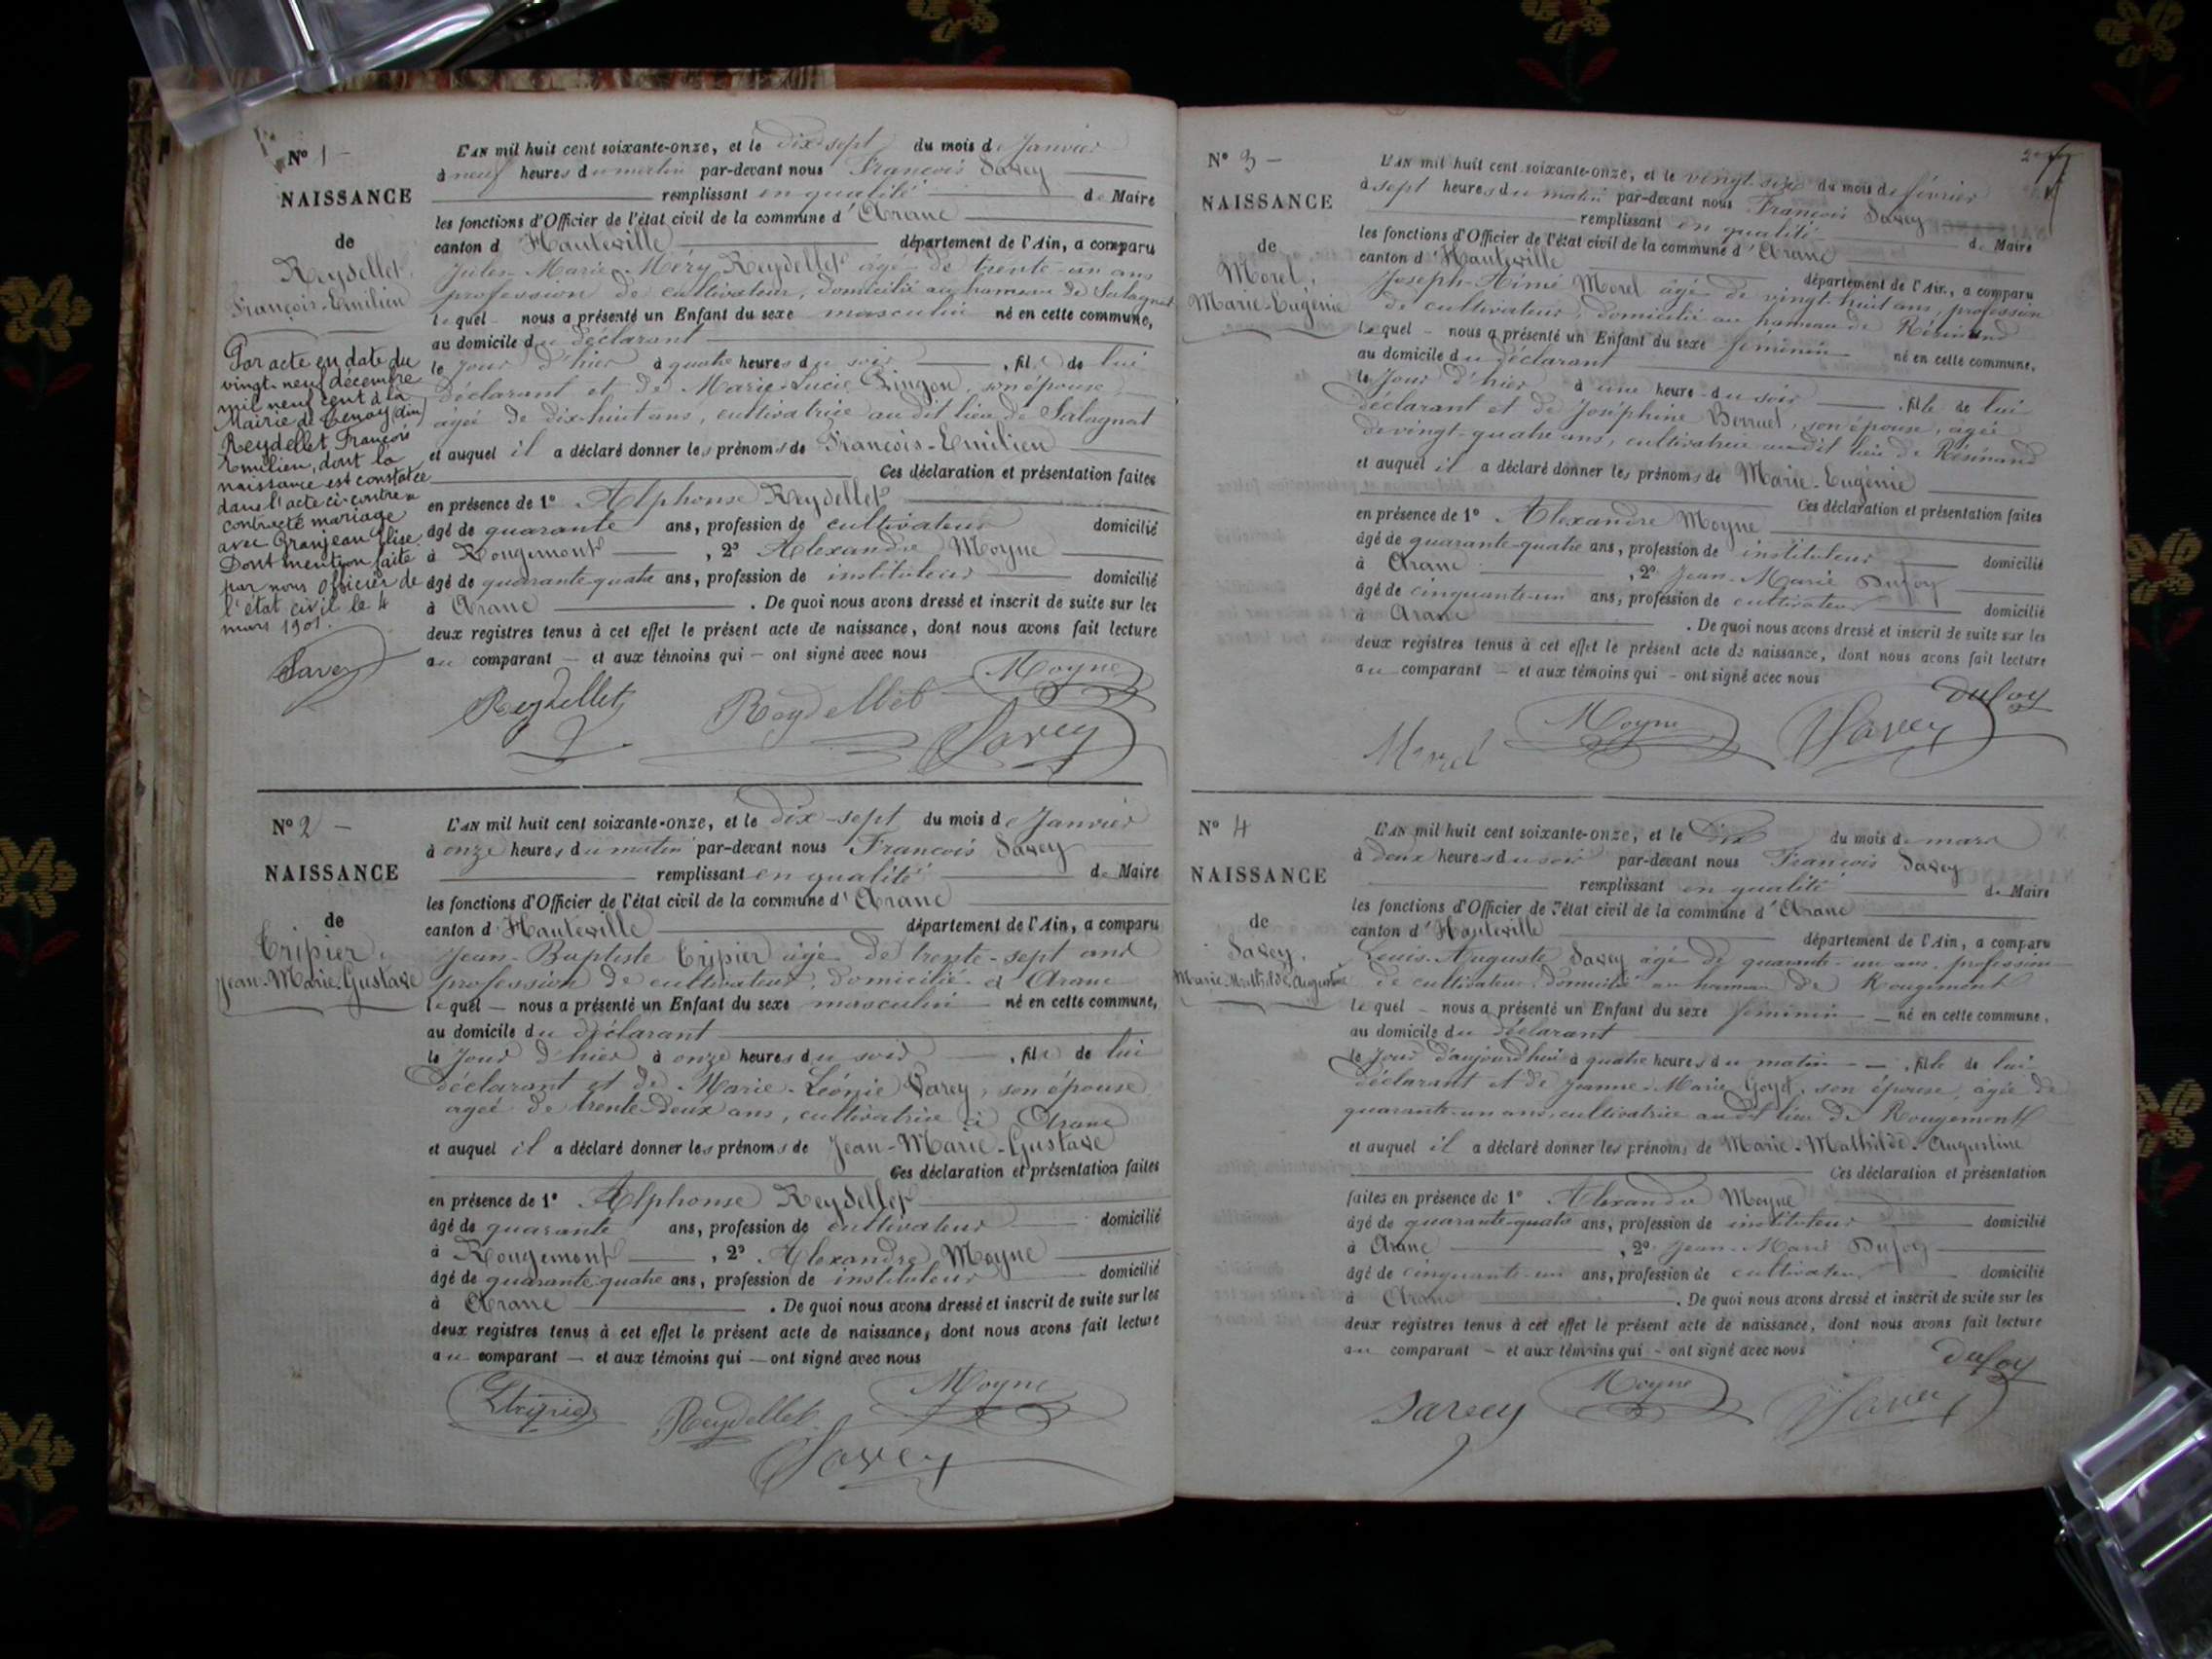 N° 1 -
NAISSANCE
de
Reydellet,
François-Emilien
Par acte en date du
vingt-neuf décembre
mil neuf cent à la
Mairie de Tenay (Ain)
Reydellet François
Emilien, dont la
naissance est constatée
dans l'acte ci-contre a
contracté mariage
avec Granjean Élise.
Dont mention faite
par nous Officier de
l'état civil le 4
mars 1901.
Savey
L'AN mil huit cent soixante-onze, et le dix-sept du mois de Janvier
à neuf heures du matin par-devant nous François Savey
remplissant en qualité de Maire
les fonctions d'Officier de l'état civil de la commune d'Aranc
canton d'Hauteville département de l'Ain, a comparu
Jules-Marie-Méry Reydellet âgé de trente-un ans
profession de cultivateur, domicilié au hameau de Salagnat
lequel - nous a présenté un Enfant du sexe masculin né en cette commune,
au domicile du déclarant
le jour d'hier à quatre heures du soir , fils de lui
déclarant et de Marie-Lucie Pingon, son épouse,
âgée de dix-huit ans, cultivatrice au dit lieu de Salagnat
et auquel il a déclaré donner les prénoms de François-Emilien
Ces déclaration et présentation faites
en présence de 1° Alphonse Reydellet
âgé de quarante ans, profession de cultivateur domicilié
à Rougemont , 2° Alexandre Moyne
âgé de quarante-quatre ans, profession de instituteur domicilié
à Aranc . De quoi nous avons dressé et inscrit de suite sur les
deux registres tenus à cet effet le présent acte de naissance, dont nous avons fait lecture
au comparant - et aux témoins qui - ont signé avec nous
Moyne
Reydellet Reydellet
Savey
N° 2 -
NAISSANCE
de
Tripier,
Jean-Marie-Gustave
L'AN mil huit cent soixante-onze, et le dix-sept du mois de Janvier
à onze heures du matin par-devant nous François Savey
remplissant en qualité de Maire
les fonctions d'Officier de l'état civil de la commune d'Aranc
canton d'Hauteville département de l'Ain, a comparu
Jean-Baptiste Tripier âgé de trente-sept ans
profession de cultivateur, domicilié à Aranc
lequel - nous a présenté un Enfant du sexe masculin né en cette commune,
au domicile du déclarant
le jour d'hier à onze heures du soir , fils de lui
déclarant et de Marie-Léonie Savey, son épouse
âgée de trente-deux ans, cultivatrice à Aranc
et auquel il a déclaré donner les prénoms de Jean-Marie-Gustave
Ces déclaration et présentation faites
en présence de 1° Alphonse Reydellet
âgé de quarante ans, profession de cultivateur domicilié
à Rougemont , 2° Alexandre Moyne
âgé de quarante-quatre ans, profession de instituteur domicilié
à Aranc . De quoi nous avons dressé et inscrit de suite sur les
deux registres tenus à cet effet le présent acte de naissance, dont nous avons fait lecture
au comparant - et aux témoins qui - ont signé avec nous
Moyne
Reydellet
Savey
N° 3 -
NAISSANCE
de
Morel,
Marie-Eugénie
L'AN mil huit cent soixante-onze, et le vingt-six du mois de février
à sept heures du matin par-devant nous François Savey
remplissant en qualité de Maire
les fonctions d'Officier de l'état civil de la commune d'Aranc
canton d'Hauteville département de l'Ain, a comparu
Joseph-Aimé Morel âgé de vingt-huit ans, profession
de cultivateur, domicilié au hameau de Résinand
lequel - nous a présenté un Enfant du sexe féminin né en cette commune,
au domicile du déclarant
le jour d'hier à une heure du soir , fille de lui
déclarant et de Joséphine Berrud, son épouse, âgée
de vingt-quatre ans, cultivatrice au dit lieu de Résinand
et auquel il a déclaré donner les prénoms de Marie-Eugénie
Ces déclaration et présentation faites
en présence de 1° Alexandre Moyne
âgé de quarante-quatre ans, profession de instituteur domicilié
à Aranc , 2° Jean-Marie Dufoy
âgé de cinquante-un ans, profession de cultivateur domicilié
à Aranc . De quoi nous avons dressé et inscrit de suite sur les
deux registres tenus à cet effet le présent acte de naissance, dont nous avons fait lecture
au comparant - et aux témoins qui - ont signé avec nous
dufoy
Morel Moyne Savey
N° 4
NAISSANCE
de
Savey,
Marie-Mathilde-Augustine
L'AN mil huit cent soixante-onze, et le Dix du mois de mars
à deux heures du soir par-devant nous François Savey
remplissant en qualité de Maire
les fonctions d'Officier de l'état civil de la commune d'Aranc
canton d'Hauteville département de l'Ain, a comparu
Louis-Auguste Savey âgé de quarante-un ans, profession
de cultivateur, domicilié au hameau de Rougemont
lequel - nous a présenté un Enfant du sexe féminin né en cette commune,
au domicile du déclarant
le jour d'aujourd'hui à quatre heures du matin , fille de lui
déclarant et de Jeanne-Marie Goyet, son épouse, âgée de
quarante-un ans, cultivatrice au dit lieu de Rougemont
et auquel il a déclaré donner les prénoms de Marie-Mathilde-Augustine
Ces déclaration et présentation
faites en présence de 1° Alexandre Moyne
âgé de quarante-quatre ans, profession de instituteur domicilié
à Aranc , 2° Jean-Marie Dufoy
âgé de cinquante-un ans, profession de cultivateur domicilié
à Aranc . De quoi nous avons dressé et inscrit de suite sur les
deux registres tenus à cet effet le présent acte de naissance, dont nous avons fait lecture
au comparant - et aux témoins qui - ont signé avec nous
dufoy
Savey Moyne Savey